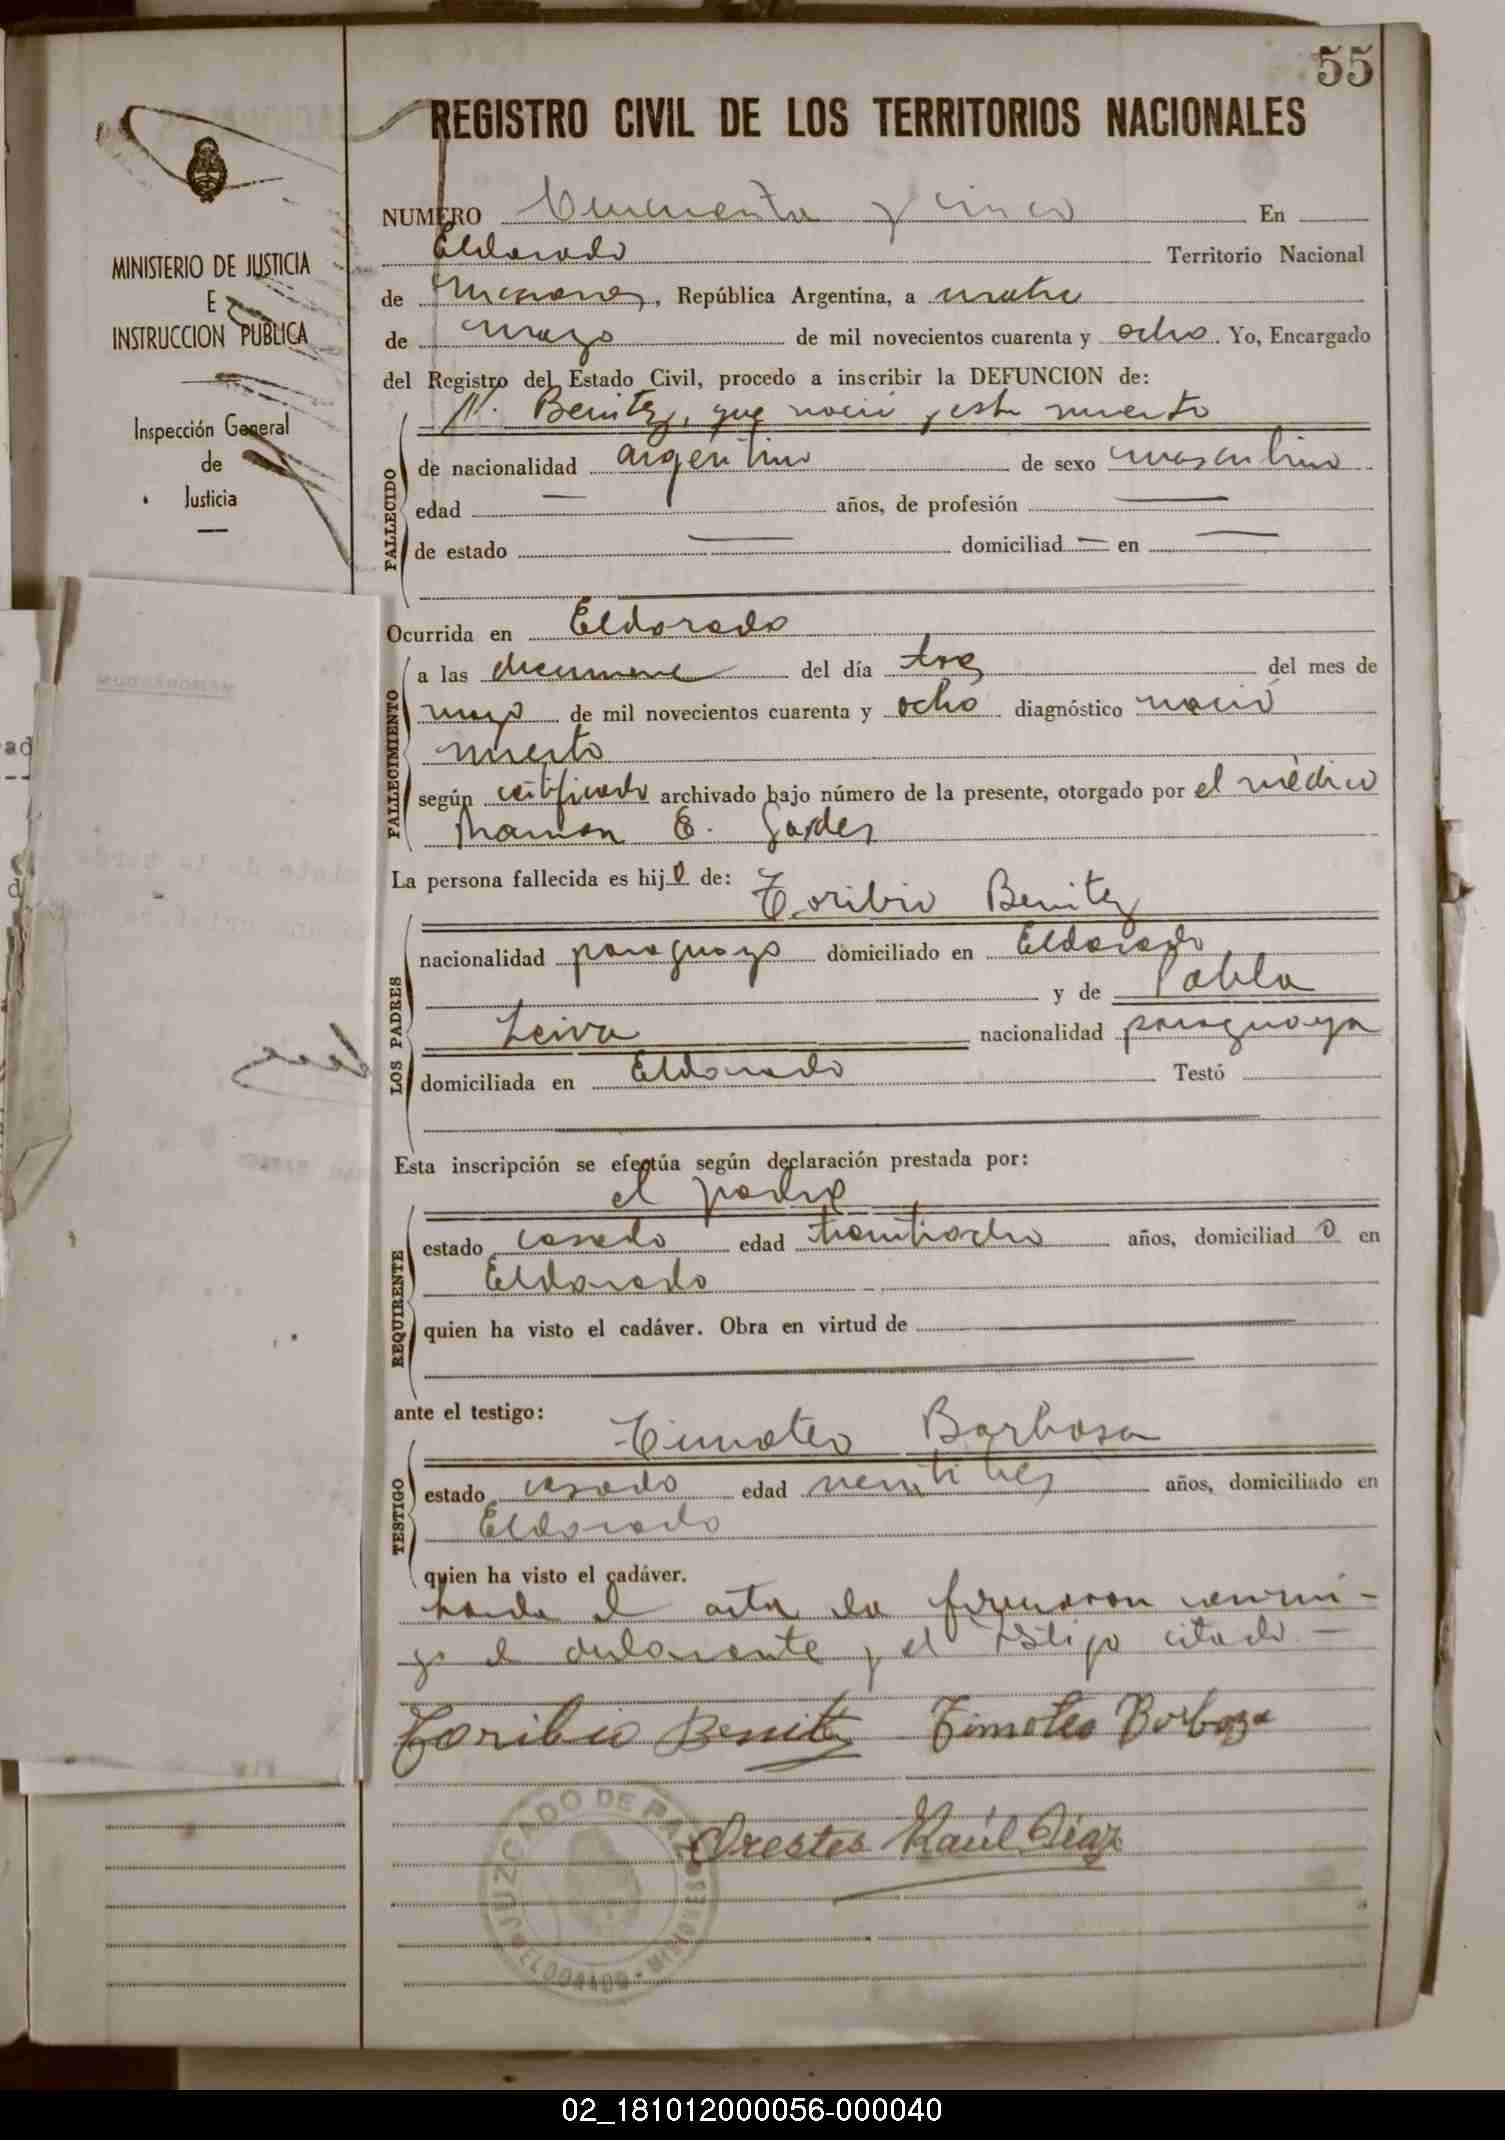 55
REGISTRO CIVIL DE LOS TERRITORIOS NACIONALES
MINISTERIO DE JUSTICIA
E
INSTRUCCION PUBLICA
Inspección General
de
Justicia
NUMERO Cincuenta y cinco En
Eldorado Territorio Nacional
de Misiones, República Argentina, a cuatro
de mayo de mil novecientos cuarenta y ocho. Yo, Encargado
del Registro del Estado Civil, procedo a inscribir la DEFUNCION de:
N. Benitez, que nació muerto
FALLECIDO
de nacionalidad argentino de sexo masculino
edad — años, de profesión —
de estado — domiciliad — en —
Ocurrida en Eldorado
FALLECIMIENTO
a las diecinueve del día tres del mes de
mayo de mil novecientos cuarenta y ocho diagnóstico nació
muerto
según certificado archivado bajo número de la presente, otorgado por el médico
Ramon E.
La persona fallecida es hijo de: Toribio Benitez
LOS PADRES
nacionalidad paraguayo domiciliado en Eldorado
y de Pabla
Leiva nacionalidad paraguaya
domiciliada en Eldorado Testó
Esta inscripción se efectúa según declaración prestada por:
el padre
REQUIRENTE
estado casado edad treintiocho años, domiciliad o en
Eldorado
quien ha visto el cadáver. Obra en virtud de
ante el testigo: Timoteo Barbosa
TESTIGO
estado casado edad veintitres años, domiciliado en
Eldorado
quien ha visto el cadáver.
Leida el acta la firmaron conmi-
go el declarante y el testigo citado —
Toribio Benitez Timoteo Borboza
Orestes Raúl Díaz
JUZGADO DE PAZ
ELDORADO - MISIONES
02_181012000056-000040